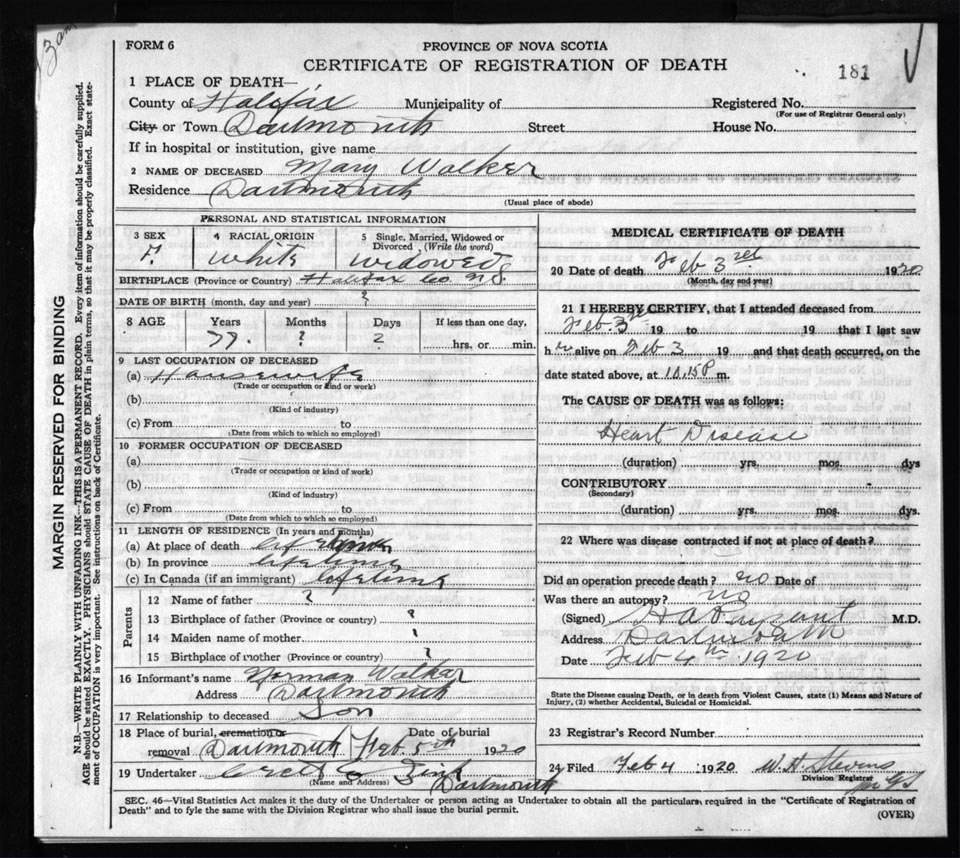 FORM 6
PROVINCE OF NOVA SCOTIA
CERTIFICATE OF REGISTRATION OF DEATH
181
1 PLACE OF DEATH—
County of Halifax Municipality of Registered No.
(For use of Registrar General only)
City or Town Dartmouth Street House No.
If in hospital or institution, give name
2 NAME OF DECEASED Mary Walker
Residence Dartmouth
(Usual place of abode)
PERSONAL AND STATISTICAL INFORMATION
3 SEX 4 RACIAL ORIGIN 5 Single, Married, Widowed or
Divorced (Write the word)
F. White Widowed
BIRTHPLACE (Province or Country) Halifax Co. N.S
DATE OF BIRTH (month, day and year) ?
8 AGE Years Months Days If less than one day,
77. ? 2 hrs. or min.
9 LAST OCCUPATION OF DECEASED
(a) Housewife
(Trade or occupation or kind or work)
(b)
(Kind of industry)
(c) From to
(Date from which to which so employed)
10 FORMER OCCUPATION OF DECEASED
(a)
(Trade or occupation or kind of work)
(b)
(Kind of industry)
(c) From to
(Date from which to which so employed)
11 LENGTH OF RESIDENCE (In years and months)
(a) At place of death
(b) In province lifetime
(c) In Canada (if an immigrant) lifetime
Parents
12 Name of father ?
13 Birthplace of father (Province or country) ?
14 Maiden name of mother ?
15 Birthplace of mother (Province or country) ?
16 Informant's name Norman Walker
Address Dartmouth
17 Relationship to deceased Son
18 Place of burial, cremation or Date of burial
removal Dartmouth Feb. 5th 1920
19 Undertaker
(Name and Address) Dartmouth
MEDICAL CERTIFICATE OF DEATH
20 Date of death Feb 3rd 1920
(Month, day and year)
21 I HEREBY CERTIFY, that I attended deceased from
Feb. 3rd 19 to 19 that I last saw
her alive on Feb 3 19 and that death occurred, on the
date stated above, at 10.15 P m.
The CAUSE OF DEATH was as follows:
Heart Disease
(duration) yrs. mos. dys
CONTRIBUTORY
(Secondary)
(duration) yrs. mos. dys.
22 Where was disease contracted if not at place of death?
Did an operation precede death? no Date of
Was there an autopsy? no
(Signed) H A Payzant M.D.
Address Dartmouth
Date Feb 4th 1920
State the Disease causing Death, or in death from Violent Causes, state (1) Means and Nature of
Injury, (2) whether Accidental, Suicidal or Homicidal.
23 Registrar's Record Number
24 Filed Feb 4 1920 W. H. Stevens
Division Registrar
SEC. 46—Vital Statistics Act makes it the duty of the Undertaker or person acting as Undertaker to obtain all the particulars required in the "Certificate of Registration of
Death" and to fyle the same with the Division Registrar who shall issue the burial permit.
(OVER)
MARGIN RESERVED FOR BINDING
N.B.—WRITE PLAINLY WITH UNFADING INK—THIS IS A PERMANENT RECORD. Every item of information should be carefully supplied.
AGE should be stated EXACTLY. PHYSICIANS should STATE CAUSE OF DEATH in plain terms, so that it may be properly classified. Exact state-
ment of OCCUPATION is very important. See instructions on back of Certificate.